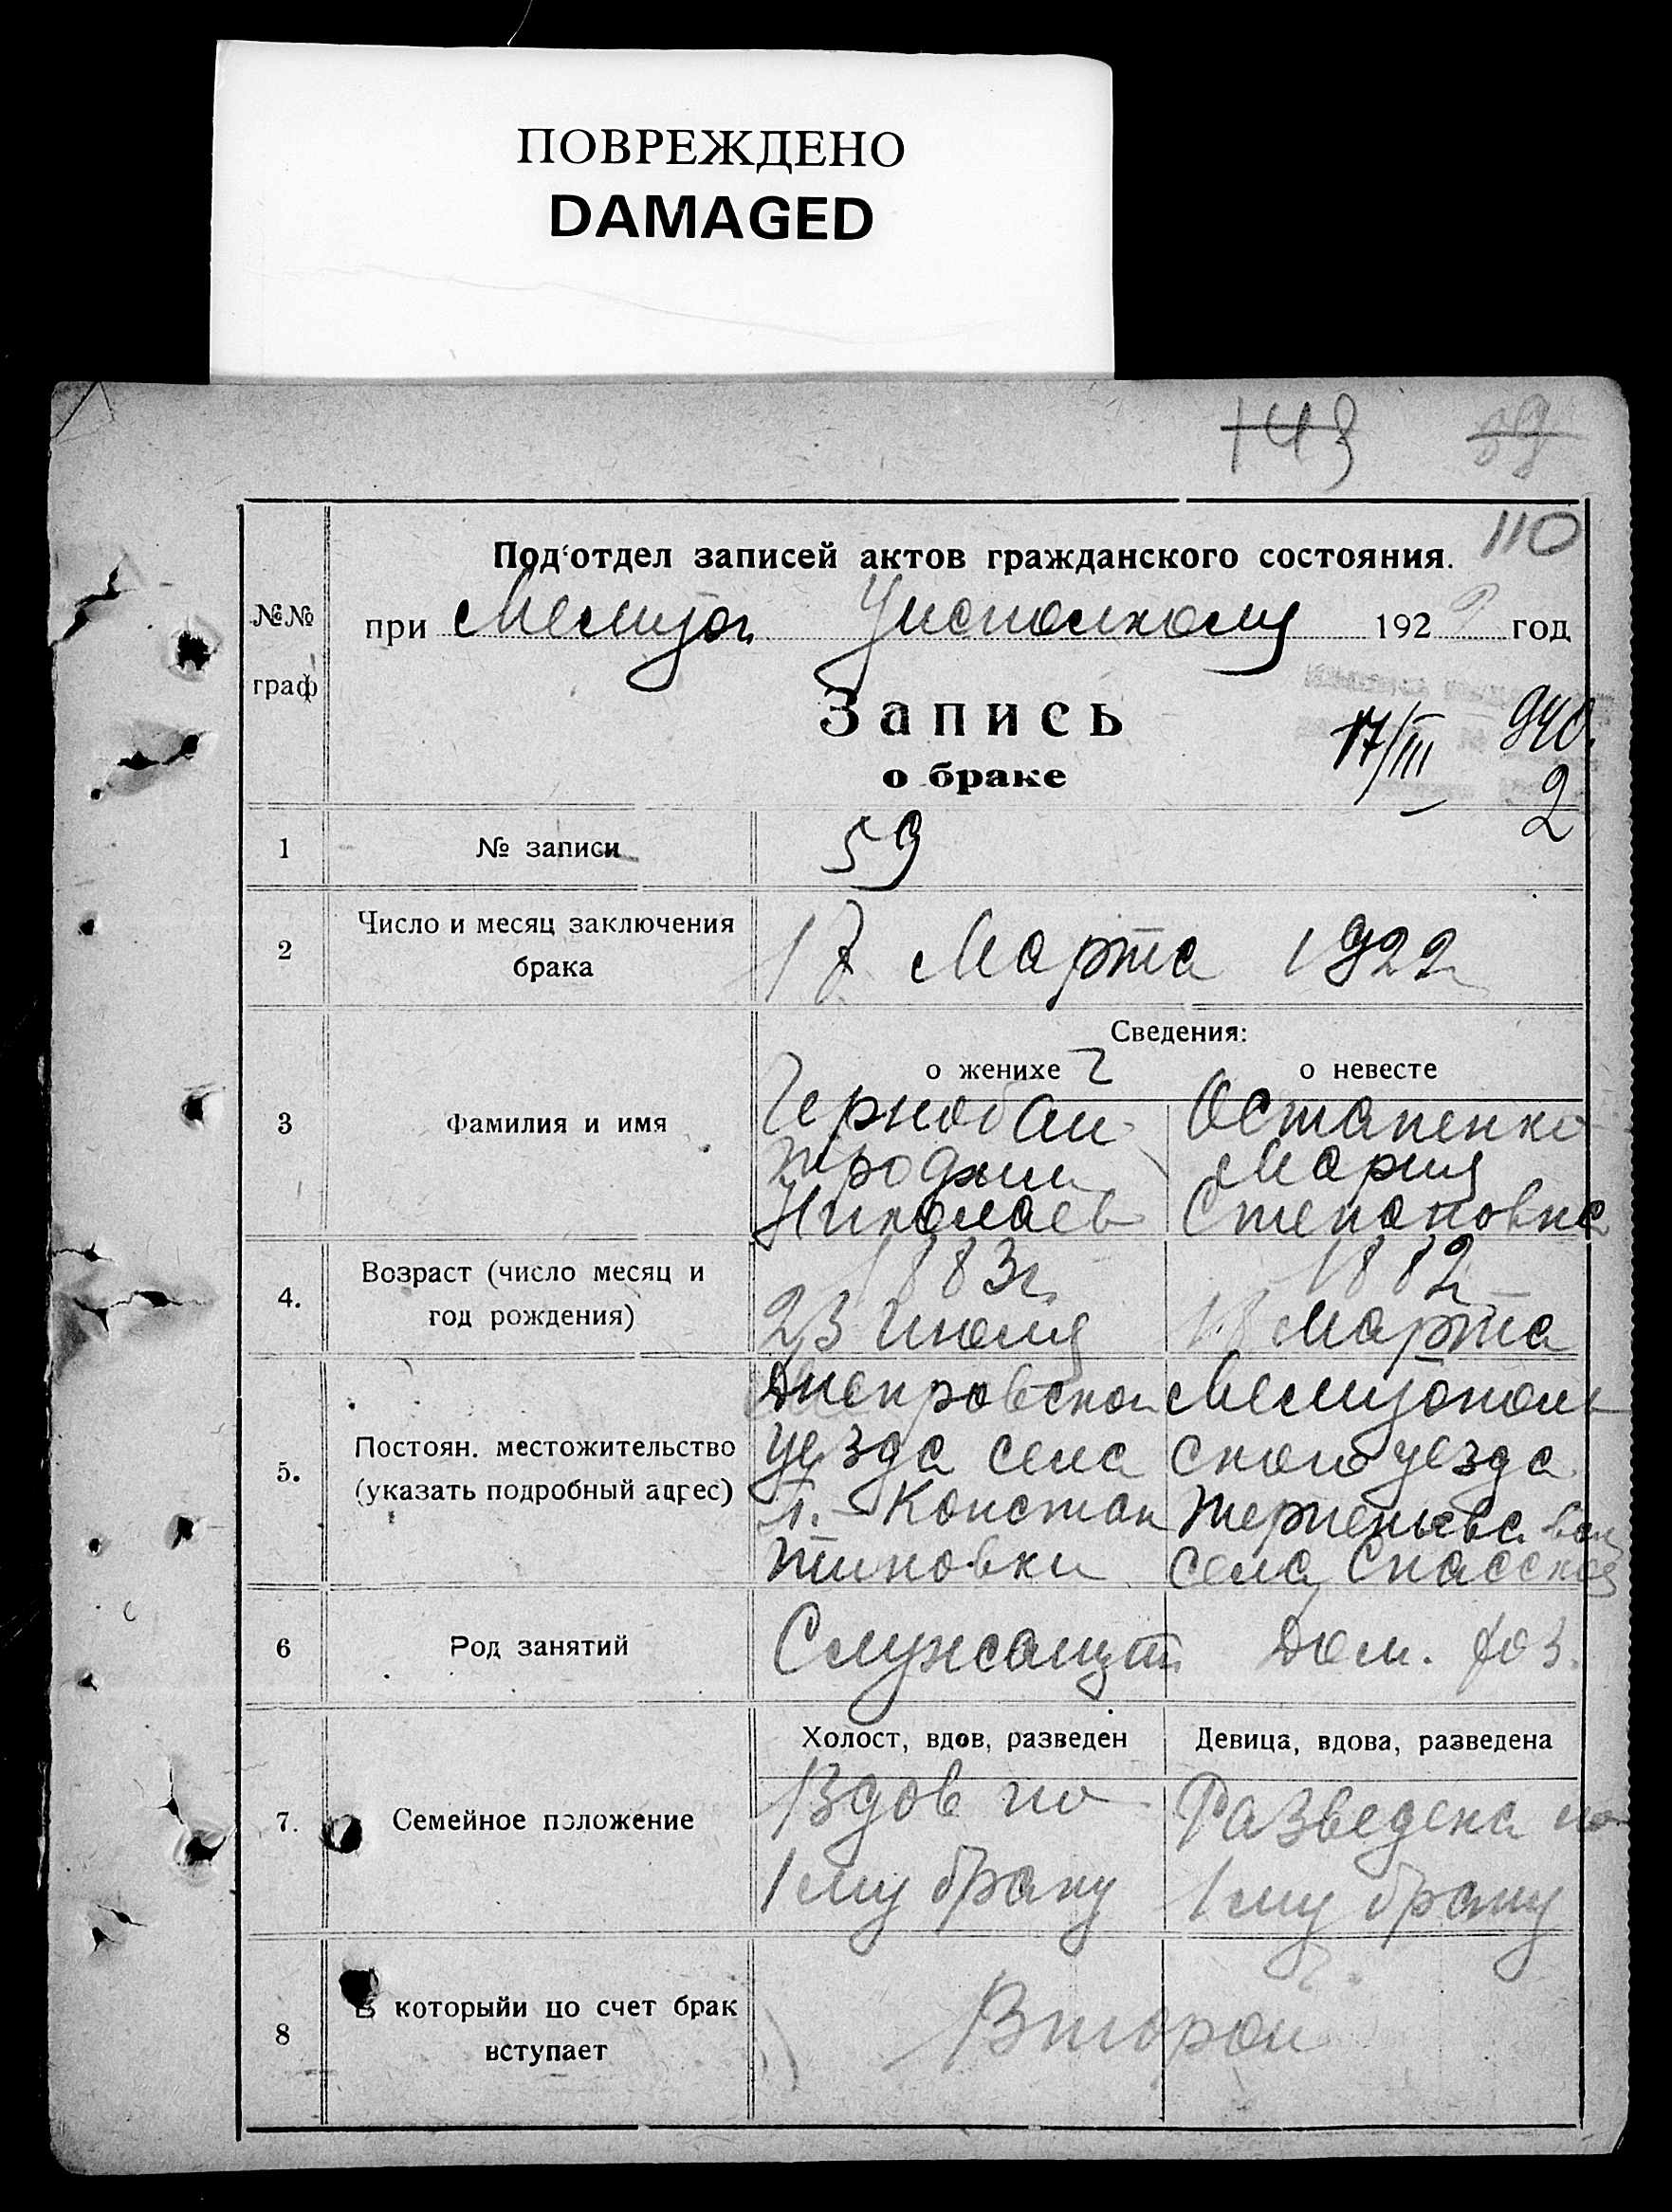 ПОВРЕЖДЕНО
DAMAGED
143 59
110
Под‘отдел записей актов гражданского состояния.
№№ граф
при Мелитоп. Уисполкому 1922 год
Запись
о браке
17/III
2
1 № записи 59
2 Число и месяц заключения
брака
17 Марта 1922
Сведения:
о женихе о невесте
3 Фамилия и имя
Чернобай Остапенко
Трофим Мария
Николаев Степановна
4. Возраст (число месяц и
год рождения)
1883г. 1882
23 Июля 18 Марта
5. Постоян. местожительство
(указать подробный адрес)
Днепровскаго Мелитополь
уезда села скаго уезда
Констан Терпеньева вол
тиновки села Спасское
6 Род занятий
Служащий Дом. хоз.
Холост, вдов, разведен Девица, вдова, разведена
7. Семейное положение
Вдов по Разведена по
1му браку 1му браку
8 В которыйи по счет брак
вступает
Второй